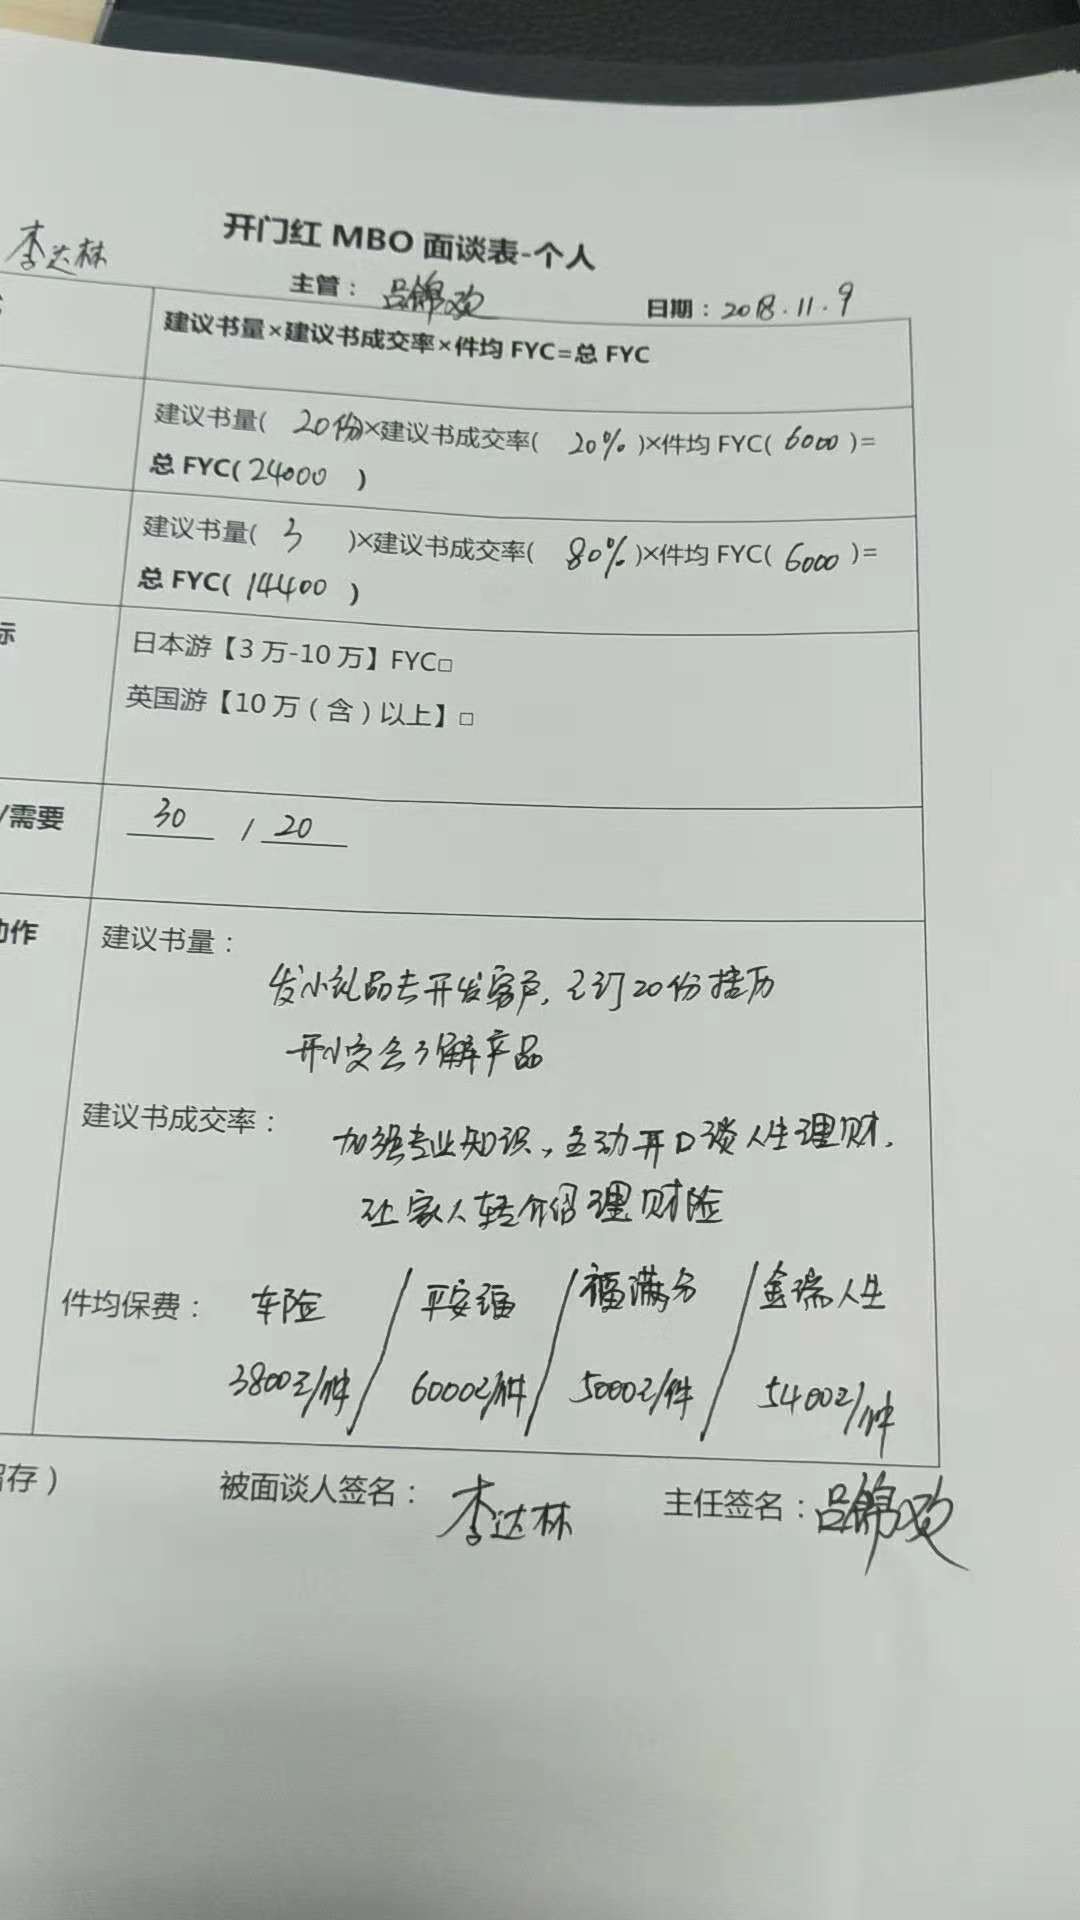 开门红 MBO 面谈表-个人
李达林
主管： 吕锦欢 日期：2018.11.9
建议书量×建议书成交率×件均 FYC=总 FYC
建议书量( 20份)×建议书成交率( 20% )×件均 FYC( 6000 )=
总 FYC( 24000 )
建议书量( 3 )×建议书成交率( 80% )×件均 FYC( 6000 )=
总 FYC( 14400 )
标
日本游【3 万-10 万】FYC□
英国游【10 万（含）以上】□
/需要
30 / 20
动作
建议书量：
发小礼品去开发客户, 已订20份挂历
开小交会了解产品
建议书成交率：
加强专业知识、主动开口谈人生理财.
让家人转介绍理财险
件均保费： 车险 / 平安福 / 福满分 / 金瑞人生
3800元/件 6000元/件 5000元/件 5400元/件
留存）
被面谈人签名： 李达林 主任签名：吕锦欢